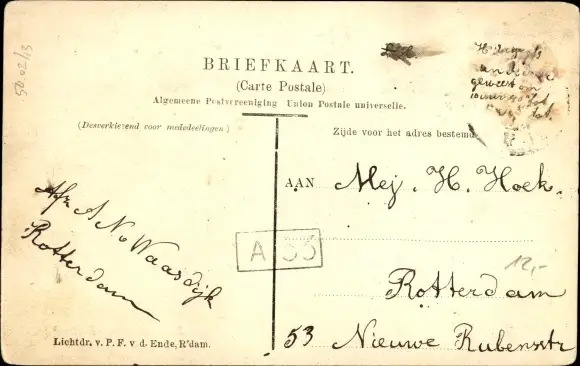 50.02/13
BRIEFKAART.
(Carte Postale)
Algemeene Postvereeniging Union Postale universelle.
(Desverkiezend voor mededeelingen)
Zijde voor het adres bestemd.
geweest
AAN Mej. H. Hoek.
Afz. A N Waasdijk
Rotterdam
A 33
12,-
Rotterdam
53 Nieuwe Rubensstr
Lichtdr. v. P. F. v d. Ende, R'dam.